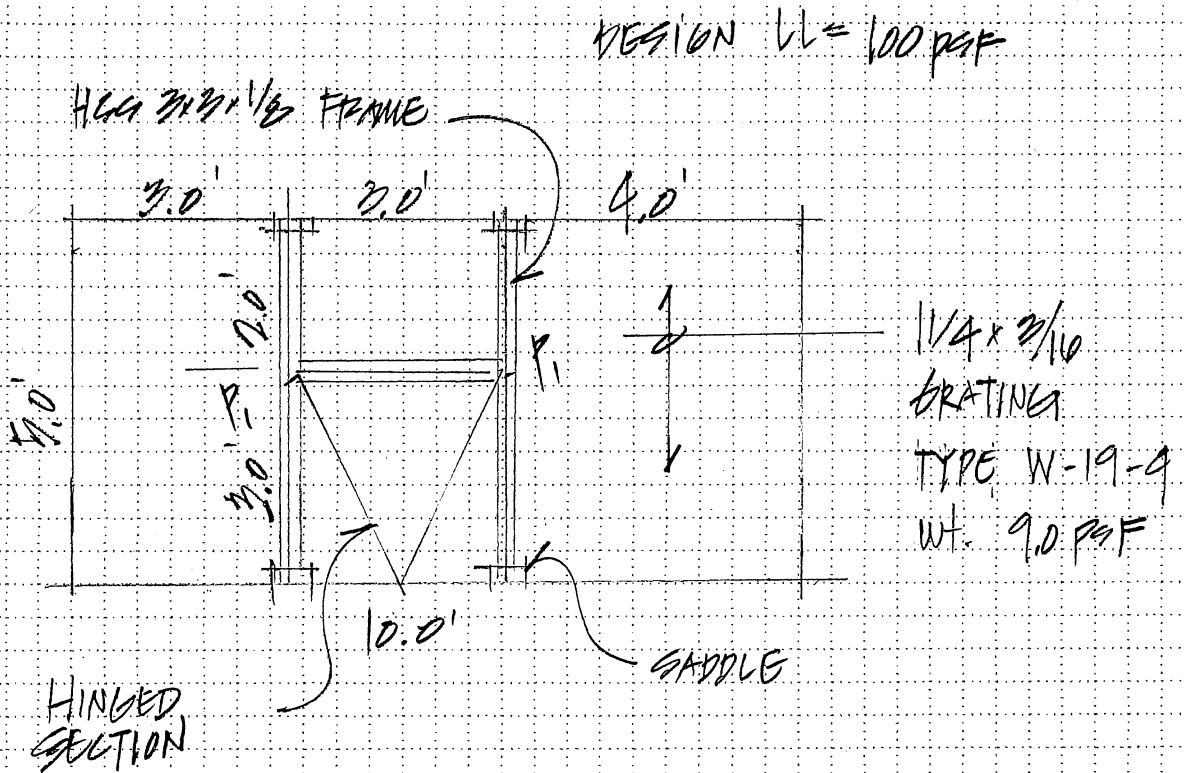 DESIGN LL = 100 PSF
HSS 3x3x1/8 FRAME
3.0' 3.0' 4.0'
2.0'
P1
P1
5.0'
3.0'
1 1/4 x 3/16
GRATING
TYPE W-19-4
Wt. 9.0 PSF
10.0'
SADDLE
HINGED
SECTION